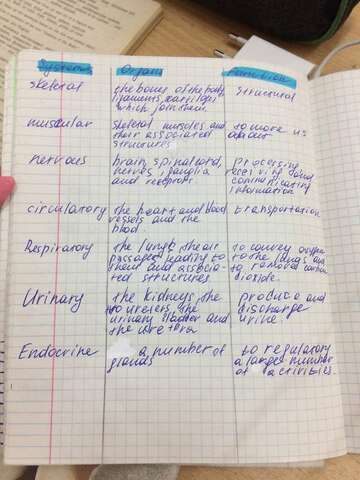 Systems Organs Function
skeletal the bones of the body, structural
ligaments, cartilages
which join them.
muscular skeletal muscles and to move us
their associated about
structures
nervous brain, spinal cord, processing
nerves, ganglia receiving and
and receptors communicating
information
circulatory the heart and blood transportation
vessels and the
blood.
Respiratory the lungs, the air to convey oxygen
passages leading to to the lungs and
them and associa- to removed carbon
ted structures dioxide.
Urinary the kidneys, the produce and
ureters, the discharge
urinary bladder and urine.
the urethra
Endocrine a number of to regulatory
glands a large number
of activities.